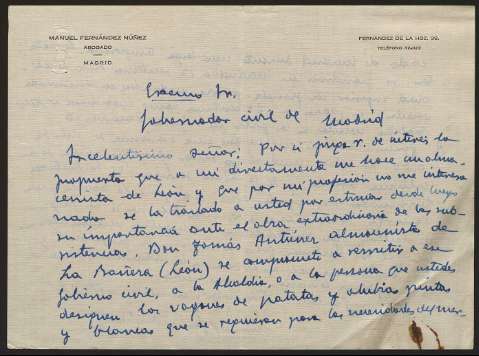 MANUEL FERNÁNDEZ NÚÑEZ
ABOGADO
MADRID
FERNÁNDEZ DE LA HOZ,
TELÉFONO
Excmo Sr.
Gobernador civil de Madrid
Excelentísimo Señor: Por si juzga V. de interés la
propuesta que a mi directamente me hace un alma-
cenista de León y que por mi profesion no me interesa
nada se la traslado a usted por estimar desde luego
su importancia ante el obra extraordinaria de las sub-
sistencias. Don Tomás almacenista de
La Bañeza (León) se compromete a remitir a ese
Gobierno civil, a la Alcaldía, o a la persona que ustedes
designen los vagones de patatas y alubias pintas
y blancas que se requieran para las necesidades del mer-